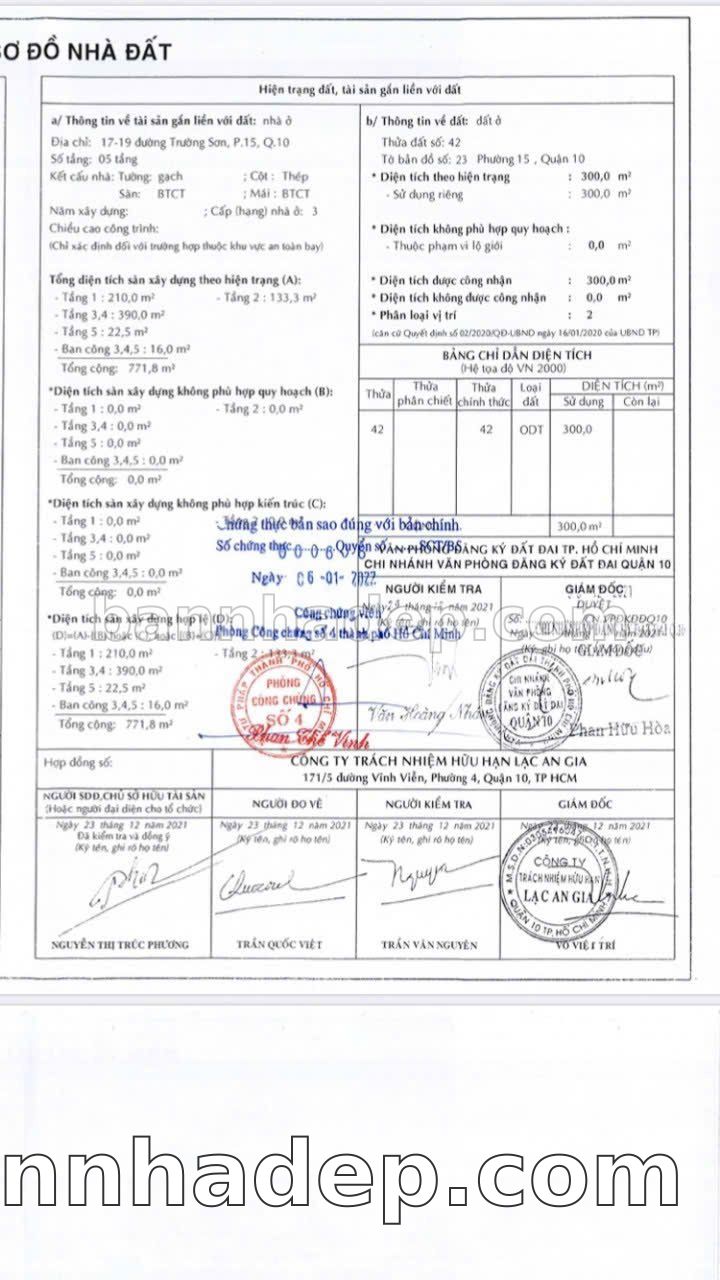 SƠ ĐỒ NHÀ ĐẤT
Hiện trạng đất, tài sản gắn liền với đất
a/ Thông tin về tài sản gắn liền với đất: nhà ở
Địa chỉ: 17-19 đường Trường Sơn, P.15, Q.10
Số tầng: 05 tầng
Kết cấu nhà: Tường: gạch ; Cột : Thép
Sàn: BTCT ; Mái : BTCT
Năm xây dựng: ; Cấp (hạng) nhà ở: 3
Chiều cao công trình:
(Chỉ xác định đối với trường hợp thuộc khu vực an toàn bay)
Tổng diện tích sàn xây dựng theo hiện trạng (A):
- Tầng 1 : 210,0 m² - Tầng 2 : 133,3 m²
- Tầng 3,4 : 390,0 m²
- Tầng 5 : 22,5 m²
- Ban công 3,4,5 : 16,0 m²
Tổng cộng: 771,8 m²
*Diện tích sàn xây dựng không phù hợp quy hoạch (B):
- Tầng 1 : 0,0 m² - Tầng 2 : 0,0 m²
- Tầng 3,4 : 0,0 m²
- Tầng 5 : 0,0 m²
- Ban công 3,4,5 : 0,0 m²
Tổng cộng: 0,0 m²
*Diện tích sàn xây dựng không phù hợp kiến trúc (C):
- Tầng 1 : 0,0 m²
- Tầng 3,4 : 0,0 m²
- Tầng 5 : 0,0 m²
- Ban công 3,4,5 : 0,0 m²
Tổng cộng: 0,0 m²
*Diện tích sàn xây dựng hợp lệ (D):
- Tầng 1 : 210,0 m² - Tầng 2 : 133,3 m²
- Tầng 3,4 : 390,0 m²
- Tầng 5 : 22,5 m²
- Ban công 3,4,5 : 16,0 m²
Tổng cộng: 771,8 m²
b/ Thông tin về đất: đất ở
Thửa đất số: 42
Tờ bản đồ số: 23 Phường 15 , Quận 10
* Diện tích theo hiện trạng : 300,0 m²
- Sử dụng riêng : 300,0 m²
* Diện tích không phù hợp quy hoạch :
- Thuộc phạm vi lộ giới : 0,0 m²
* Diện tích được công nhận : 300,0 m²
* Diện tích không được công nhận : 0,0 m²
* Phân loại vị trí : 2
(căn cứ Quyết định số 02/2020/QĐ-UBND ngày 16/01/2020 của UBND TP)
BẢNG CHỈ DẪN DIỆN TÍCH
(Hệ tọa độ VN 2000)
Thửa Thửa phân chiết Thửa chính thức Loại đất DIỆN TÍCH (m²)
Sử dụng Còn lại
42 42 ODT 300,0
300,0 m²
Chứng thực bản sao đúng với bản chính
Số chứng thực Quyển số SCT/BS
Ngày 06 -01- 2022
Công chứng viên
Phòng Công chứng số 4 thành phố Hồ Chí Minh
PHÒNG
CÔNG CHỨNG
SỐ 4
Phan Thế Vinh
VĂN PHÒNG ĐĂNG KÝ ĐẤT ĐAI TP. HỒ CHÍ MINH
CHI NHÁNH VĂN PHÒNG ĐĂNG KÝ ĐẤT ĐAI QUẬN 10
NGƯỜI KIỂM TRA
GIÁM ĐỐC
DUYỆT
GIÁM ĐỐC
CHI NHÁNH
VĂN PHÒNG
ĐĂNG KÝ ĐẤT ĐAI
QUẬN 10
Phan Hữu Hòa
bannhadep.com
Hợp đồng số:
CÔNG TY TRÁCH NHIỆM HỮU HẠN LẠC AN GIA
171/5 đường Vĩnh Viễn, Phường 4, Quận 10, TP HCM
NGƯỜI SDĐ,CHỦ SỞ HỮU TÀI SẢN
(Hoặc người đại diện cho tổ chức)
NGƯỜI ĐO VẼ
NGƯỜI KIỂM TRA
GIÁM ĐỐC
Ngày 23 tháng 12 năm 2021
Đã kiểm tra và đồng ý
(Ký tên, ghi rõ họ tên)
Ngày 23 tháng 12 năm 2021
(Ký tên, ghi rõ họ tên)
Ngày 23 tháng 12 năm 2021
(Ký tên, ghi rõ họ tên)
12 năm 2021
CÔNG TY
TRÁCH NHIỆM HỮU HẠN
LẠC AN GIA
QUẬN 10 TP. HỒ CHÍ MINH
NGUYỄN THỊ TRÚC PHƯƠNG
TRẦN QUỐC VIỆT
TRẦN VĂN NGUYÊN
VÕ VIỆT TRÍ
nnhadep.com